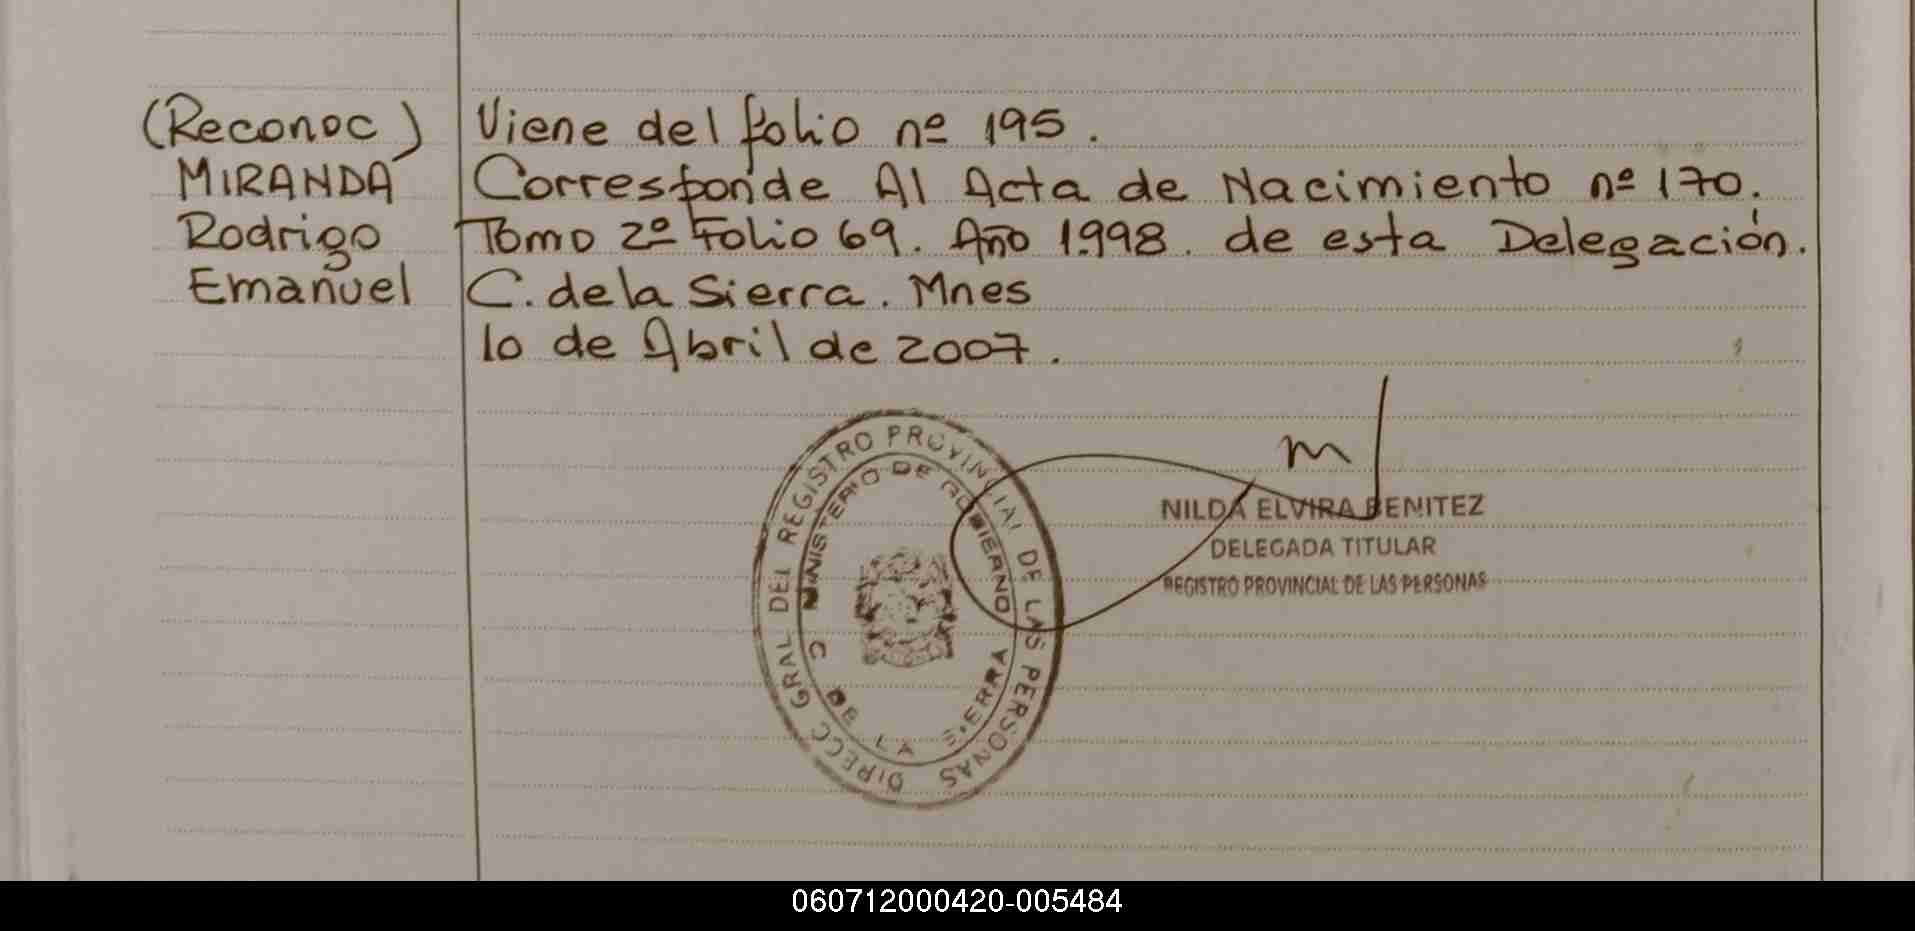 (Reconoc)
MIRANDA
Rodrigo
Emanuel
Viene del folio nº 195.
Corresponde Al Acta de Nacimiento nº 170.
Tomo 2º Folio 69. Año 1.998. de esta Delegación.
C. de la Sierra. Mnes
10 de Abril de 2007.
DIRECC GRAL DEL REGISTRO PROVINCIAL DE LAS PERSONAS
MINISTERIO DE GOBIERNO
C DE LA SIERRA
NILDA ELVIRA BENITEZ
DELEGADA TITULAR
REGISTRO PROVINCIAL DE LAS PERSONAS
060712000420-005484